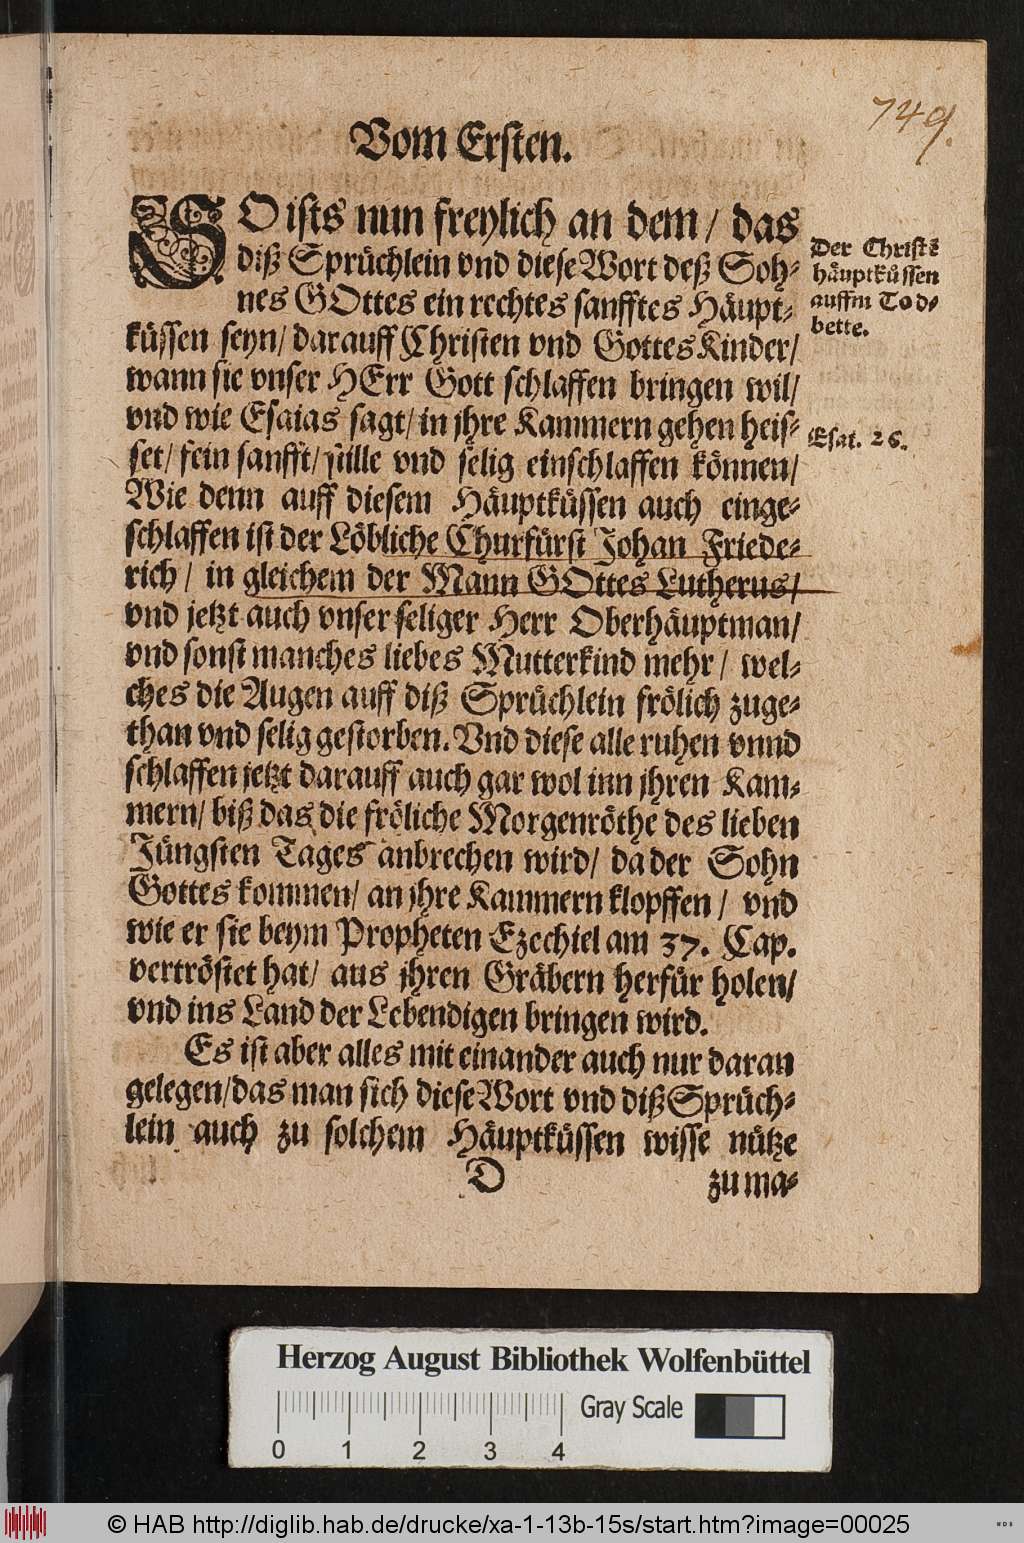 749.
Vom Ersten.
SO ists nun freylich an dem / das
diß Sprüchlein vnd diese Wort deß Soh-
nes GOttes ein rechtes sanfftes Häupt-
küssen seyn / darauff Christen vnd Gottes Kinder /
wann sie vnser HErr Gott schlaffen bringen wil /
vnd wie Esaias sagt / in jhre Kammern gehen heis-
set / fein sanfft / stille vnd selig einschlaffen können /
Wie denn auff diesem Häuptküssen auch einge-
schlaffen ist der Löbliche Churfürst Johan Friede-
rich / in gleichem der Mann GOttes Lutherus /
vnd jetzt auch vnser seliger Herr Oberhäuptman /
vnd sonst manches liebes Mutterkind mehr / wel-
ches die Augen auff diß Sprüchlein frölich zuge-
than vnd selig gestorben. Vnd diese alle ruhen vnnd
schlaffen jetzt darauff auch gar wol inn jhren Kam-
mern / biß das die fröliche Morgenröthe des lieben
Jüngsten Tages anbrechen wird / da der Sohn
Gottes kommen / an jhre Kammern klopffen / vnd
wie er sie beym Propheten Ezechiel am 37. Cap.
vertröstet hat / aus jhren Gräbern herfür holen /
vnd ins Land der Lebendigen bringen wird.
Es ist aber alles mit einander auch nur daran
gelegen / das man sich diese Wort vnd diß Sprüch-
lein auch zu solchem Häuptküssen wisse nütze
D
zu ma-
Der Christē
häuptküssen
auffm Tod-
bette.
Esai. 26.
Herzog August Bibliothek Wolfenbüttel
Gray Scale
0 1 2 3 4
© HAB http://diglib.hab.de/drucke/xa-1-13b-15s/start.htm?image=00025